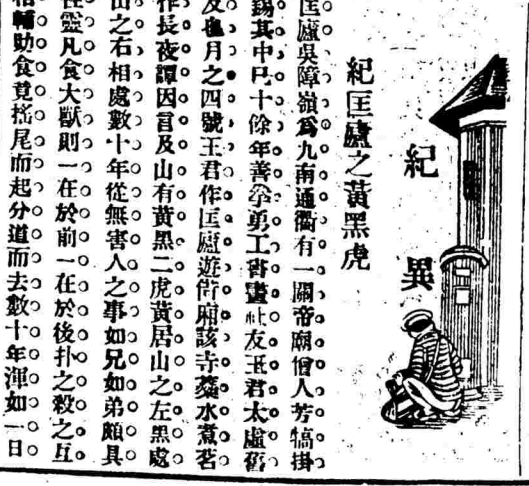 紀異
紀匡廬之黃黑虎
匡廬吳障嶺爲九南通衢有一關帝廟僧人芳犒掛
錫其中已十餘年善拳勇工書畫社友王君太虛舊
及也月之四號王君作匡廬遊廂該寺水煮茗
作長夜譚因言及山有黃黑二虎黃居山之左黑處
山之右相處數十年從無害人之事如兄如弟頗具
性靈凡食大獸則一在於前一在於後扑之殺之互
相輔助食竟搖尾而起分道而去數十年渾如一日